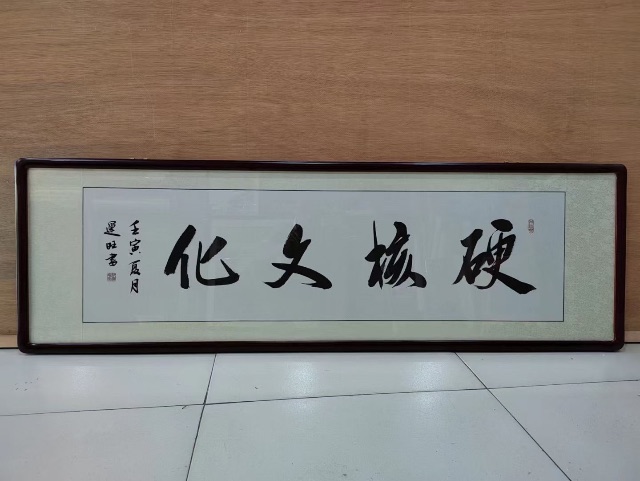 硬核文化
壬寅夏月
旺書